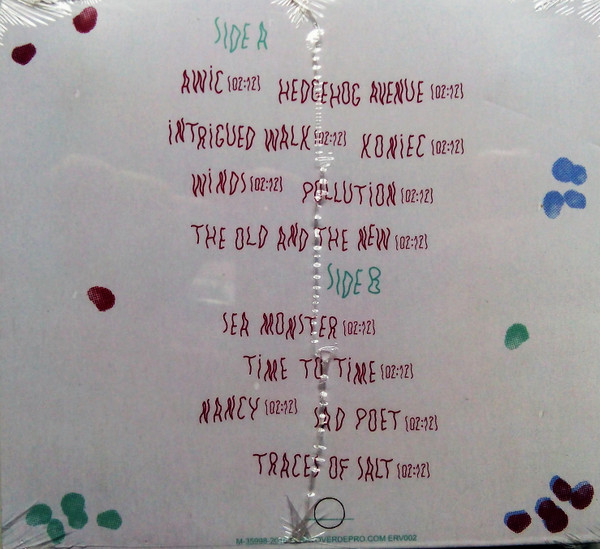 SIDE A
AWIC [02:12] HEDGEHOG AVENUE [02:12]
INTRIGUED WALK [02:12] KONIEC [02:12]
WINDS [02:12] POLLUTION [02:12]
THE OLD AND THE NEW [02:12]
SIDE B
SEA MONSTER [02:12]
TIME TO TIME [02:12]
NANCY [02:12] SAD POET [02:12]
TRACES OF SALT [02:12]
OVERDEPRO.COM ERV002